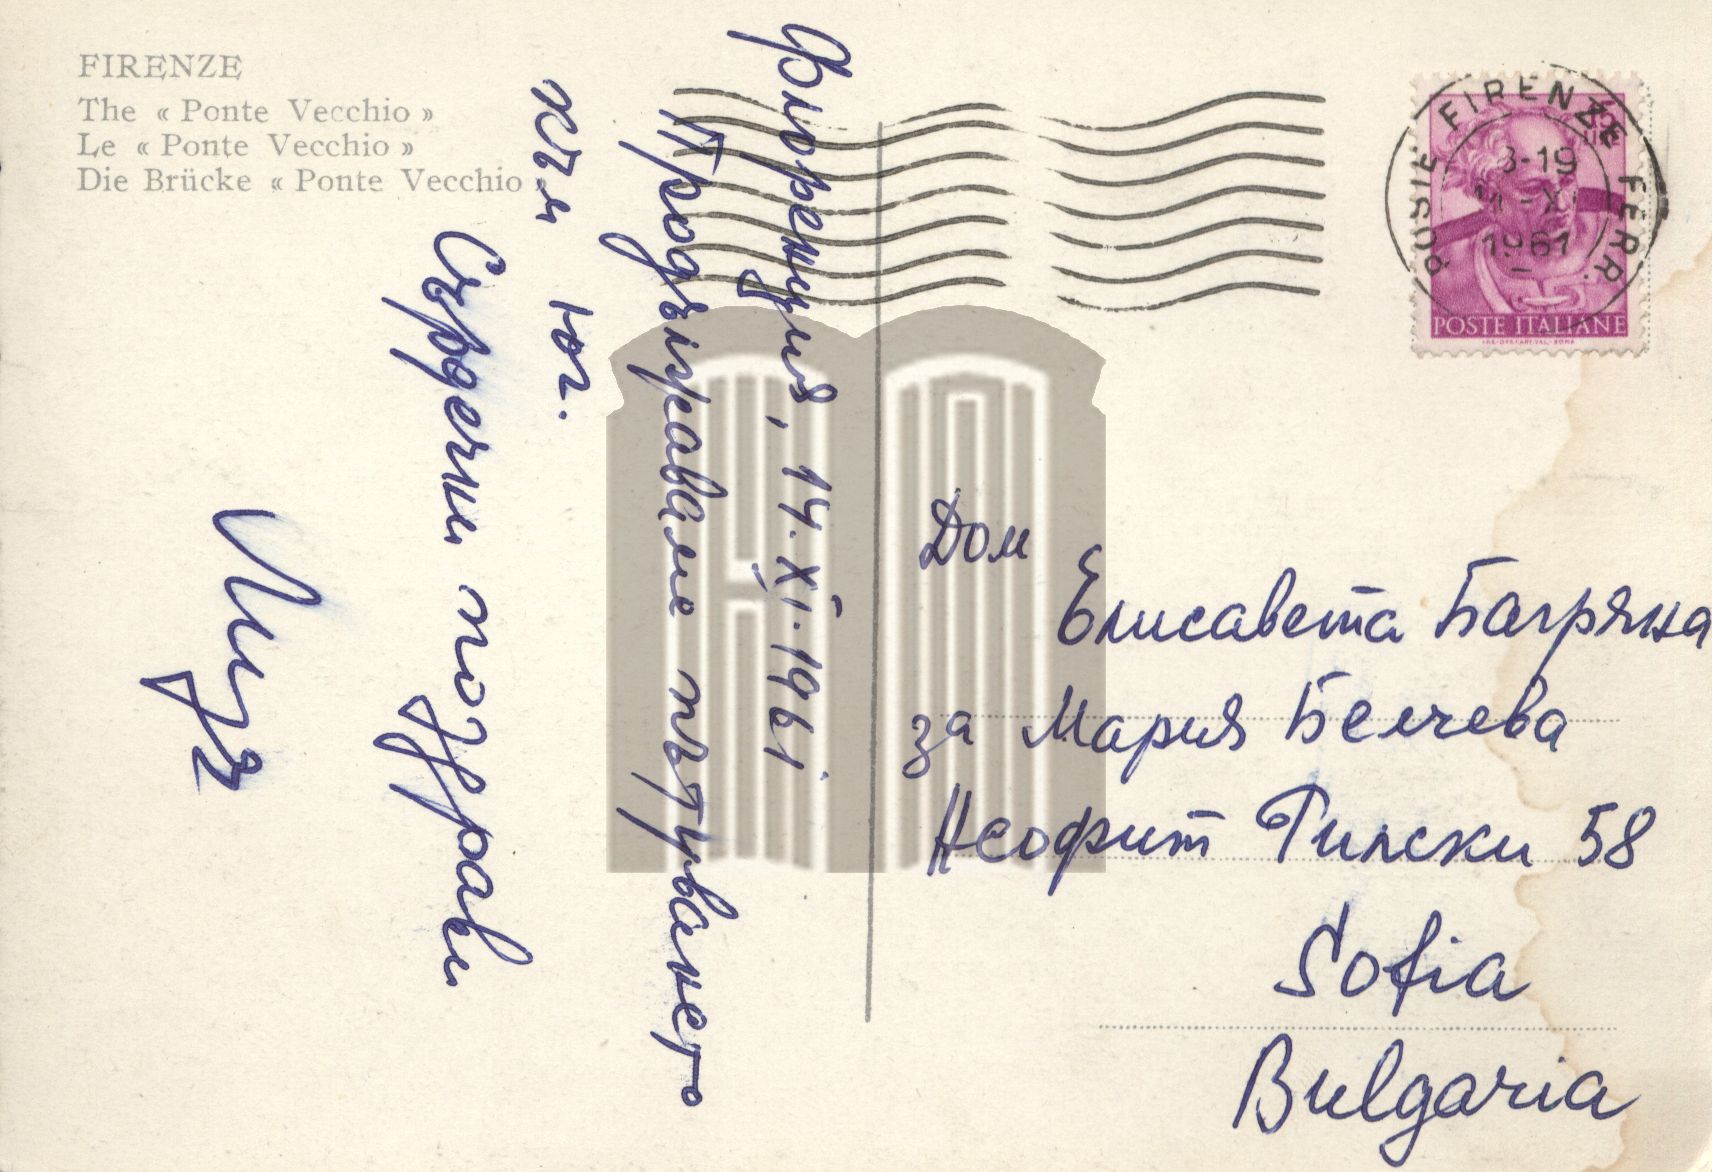 FIRENZE
The « Ponte Vecchio »
Le « Ponte Vecchio »
Die Brücke « Ponte Vecchio »
Флоренция, 14.XI.1961
Продължаваме пътуването
към юг.
Сърдечни поздрави
POSTE FERR.
FIRENZE
8-19
1961
POSTE ITALIANE
Дом
Елисавета Багряна
за Мария Белчева
Неофит Рилски 58
Sofia
Bulgaria